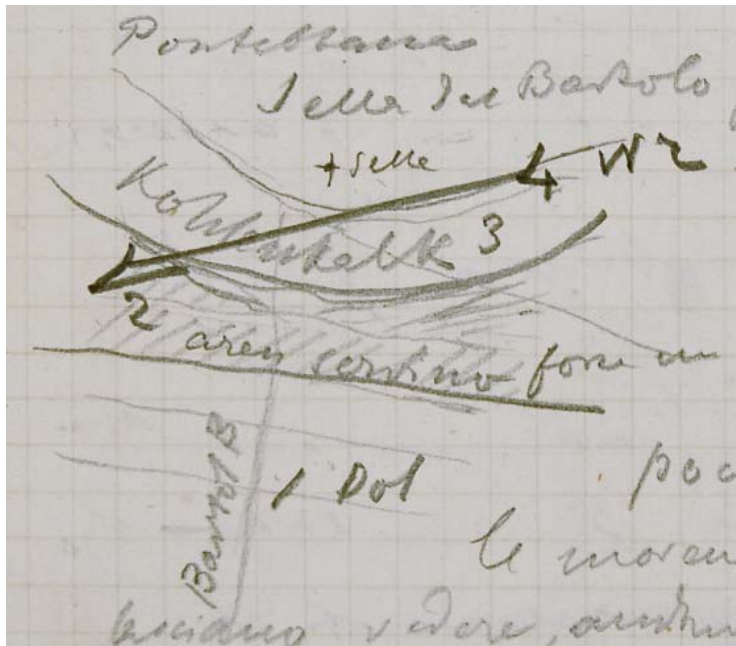 Pontebbana
Sella del Bartolo
+ Selle
4 W 2
Kohlenkalk 3
2
aren servino forse un
Bartol B
1 Dol
poc
le moren
lasciano vedere, andan